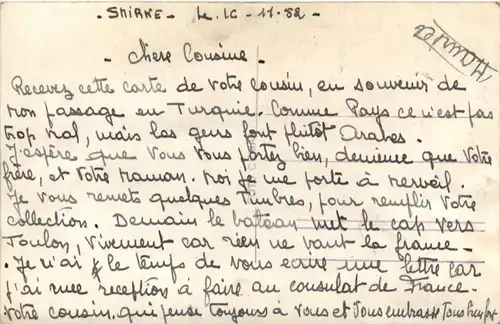 - SMIRNE - Le 16 - 11 - 52 -
- Chere Cousine -
Recevez cette carte de votre cousin, en souvenir de
mon passage en Turquie. Comme Pays ce n'est pas
trop mal, mais les gens font plutôt Arabes.
J'espère que vous vous portez bien, de même que votre
frère, et votre Maman. Moi je me porte à merveil.
Je vous remets quelques Timbres, pour remplir votre
collection. Demain le batteau met le cap vers
Toulon, vivement car rien ne vaut la france -
. Je n'ai le temps de vous écrire une lettre car
j'ai une reception à faire au consulat de France.
Votre cousin qui pense toujours à vous et vous embrasse tous bien fort